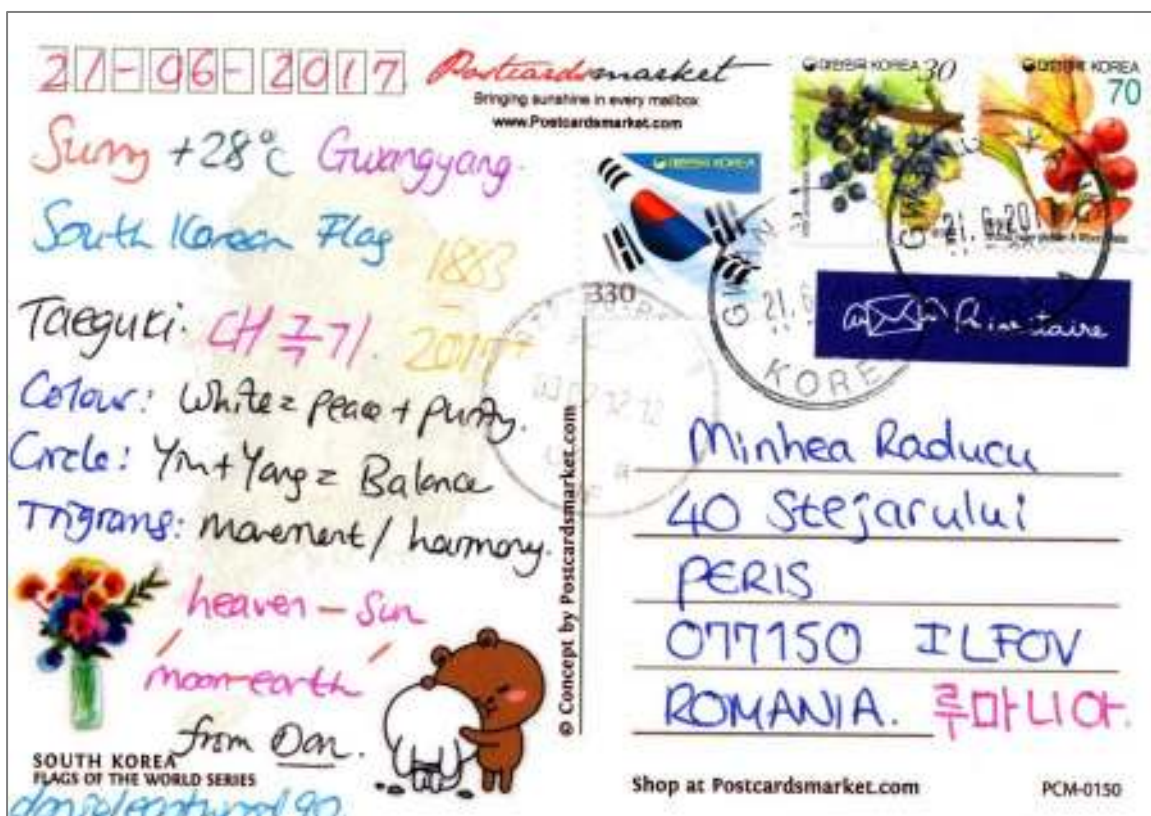 21-06-2017
Postcardsmarket
Bringing sunshine in every mailbox
www.Postcardsmarket.com
대한민국 KOREA 30
대한민국 KOREA
70
Sunny +28°C Gwangyang.
대한민국 KOREA
330
South Korean Flag
1883
-
2017
Taeguki. 태극기.
Colour: White = peace + purity.
Circle: Yin + Yang = Balance
Trigrams: movement / harmony.
heaven - sun
moon-earth
from Dan.
SOUTH KOREA
FLAGS OF THE WORLD SERIES
21.6.201
21.6
KORE
Prioritaire
© Concept by Postcardsmarket.com
Minhea Raducu
40 Stejarului
PERIS
077150 ILFOV
ROMANIA. 루마니아.
Shop at Postcardsmarket.com
PCM-0150